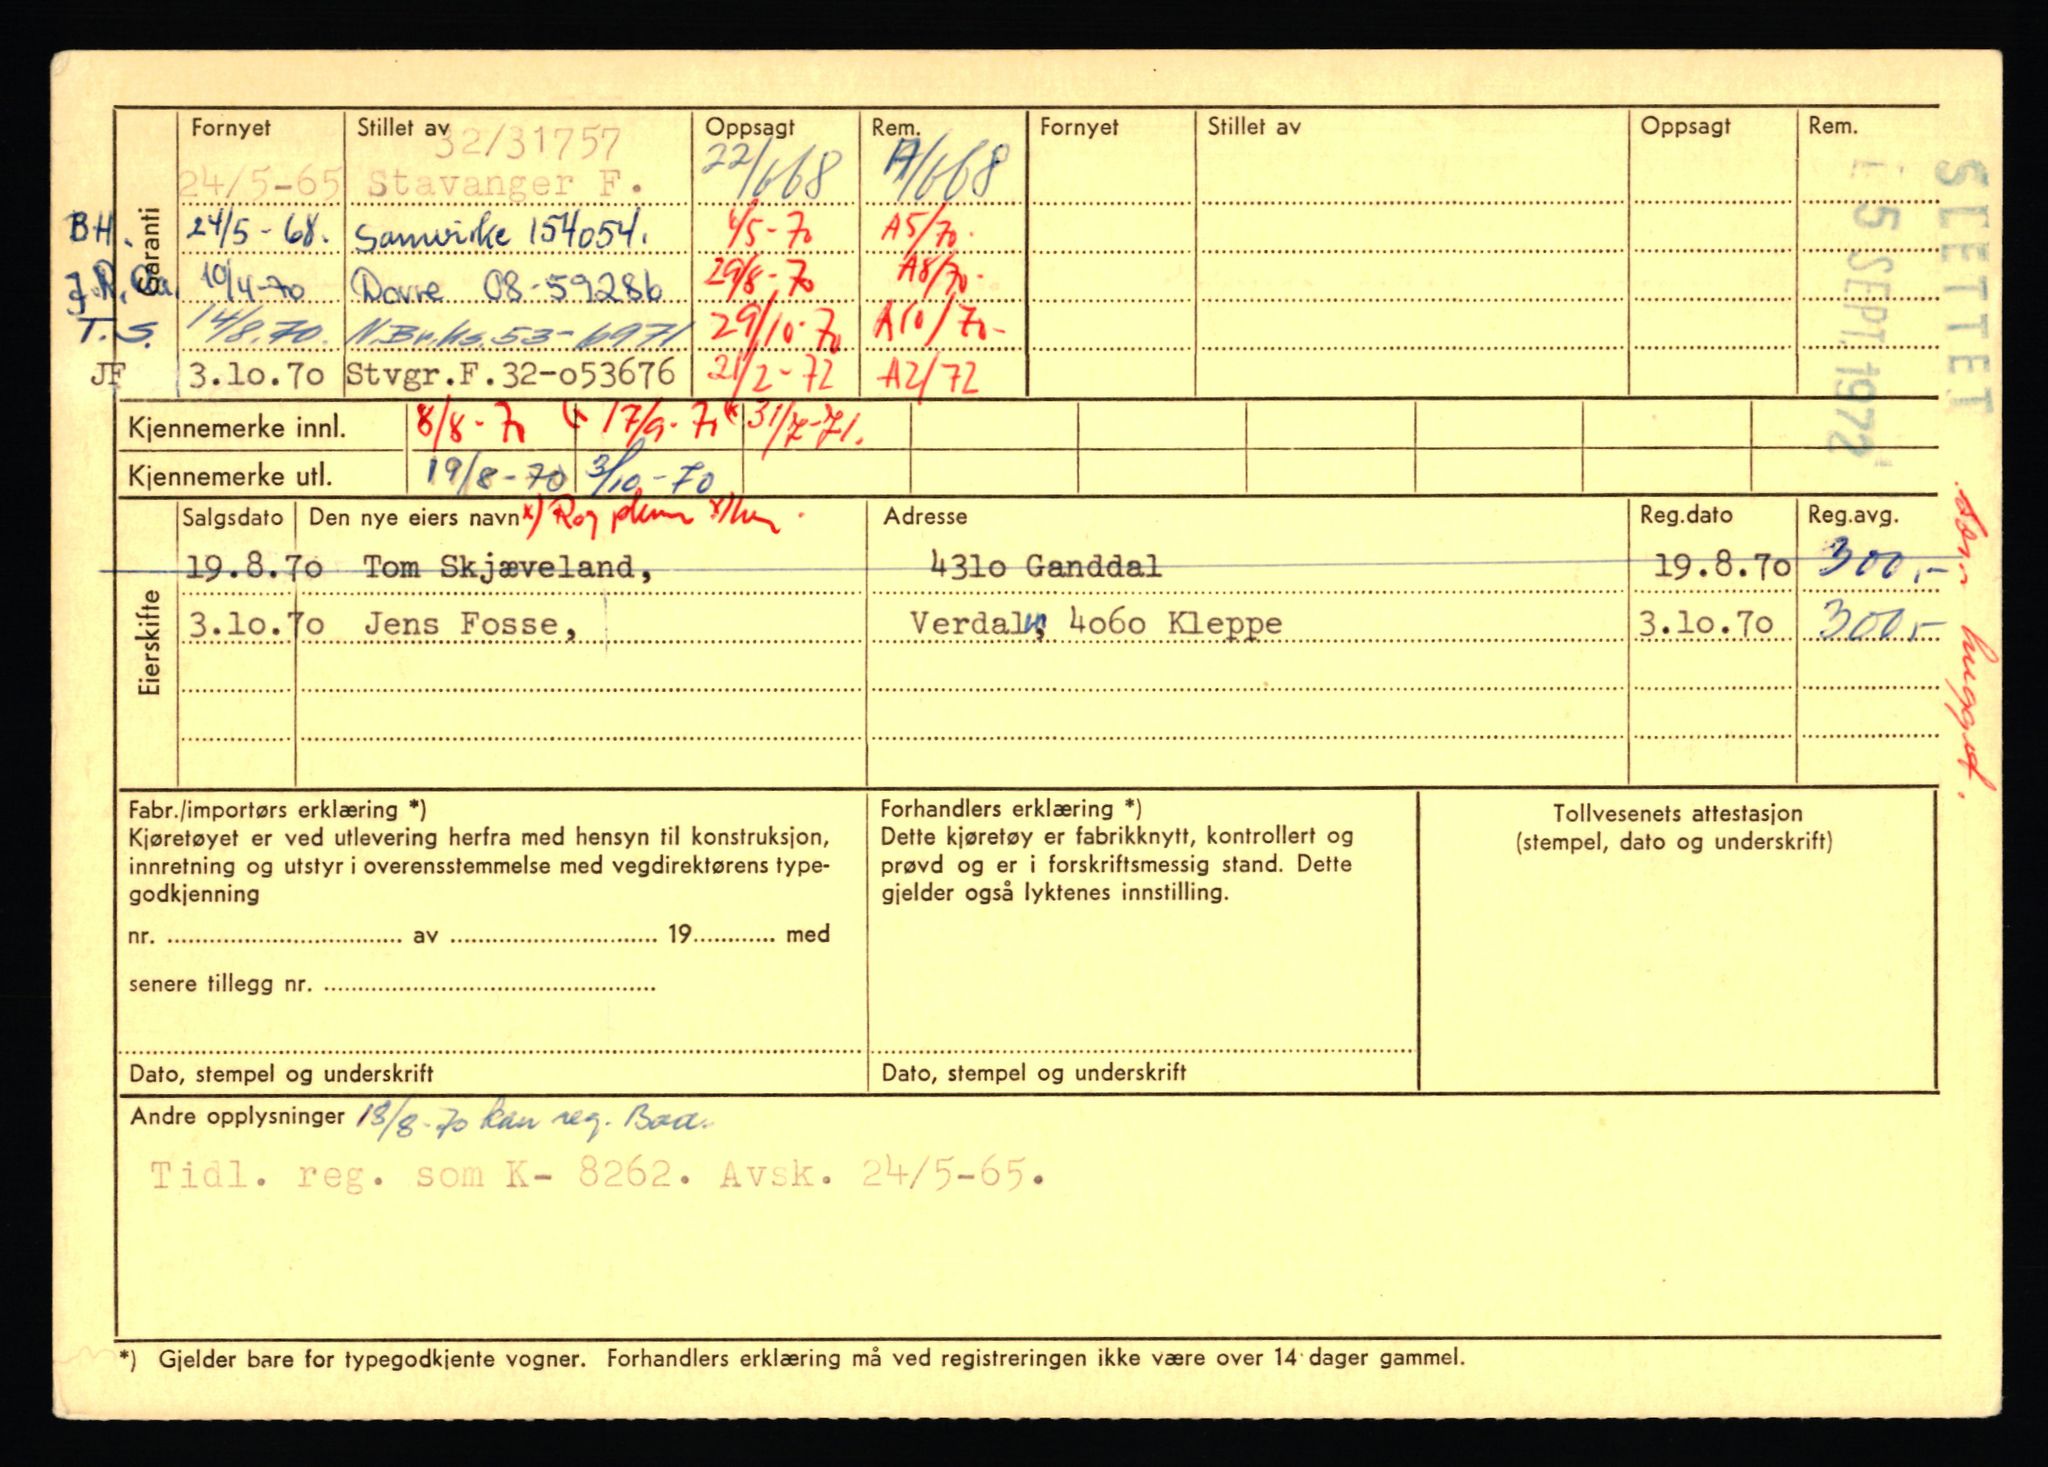 Garanti
Fornyet Stillet av Oppsagt Rem. Fornyet Stillet av Oppsagt Rem.
32/31757
24/5-65 Stavanger F. 22/668 A/668
B.H. 24/5-68. Samvirke 154054. 4/5-70 A5/70.
10/4-70 Dovre 08-59286 29/8-70 A8/70.
T.S. 14/8.70. 53-6971 29/10-70 A10/70-
JF 3.10.70 Stvgr.F.32-053676 21/2-72 A2/72
SLETTET
5 SEPT. 1972
Kjennemerke innl. 8/8-70 17/9-70 31/7-71.
Kjennemerke utl. 19/8-70 3/10-70
Eierskifte
Salgsdato Den nye eiers navn Adresse Reg.dato Reg.avg.
19.8.70 Tom Skjæveland, 4310 Ganddal 19.8.70 300,-
3.10.70 Jens Fosse, Verdalen, 4060 Kleppe 3.10.70 300,-
hugget.
Fabr./importørs erklæring *)
Kjøretøyet er ved utlevering herfra med hensyn til konstruksjon,
innretning og utstyr i overensstemmelse med vegdirektørens type-
godkjenning
nr. ........ av ........ 19........ med
senere tillegg nr. ........
Dato, stempel og underskrift
Forhandlers erklæring *)
Dette kjøretøy er fabrikknytt, kontrollert og
prøvd og er i forskriftsmessig stand. Dette
gjelder også lyktenes innstilling.
Dato, stempel og underskrift
Tollvesenets attestasjon
(stempel, dato og underskrift)
Andre opplysninger 18/8-70 kan reg. Baa.
Tidl. reg. som K- 8262. Avsk. 24/5-65.
*) Gjelder bare for typegodkjente vogner. Forhandlers erklæring må ved registreringen ikke være over 14 dager gammel.